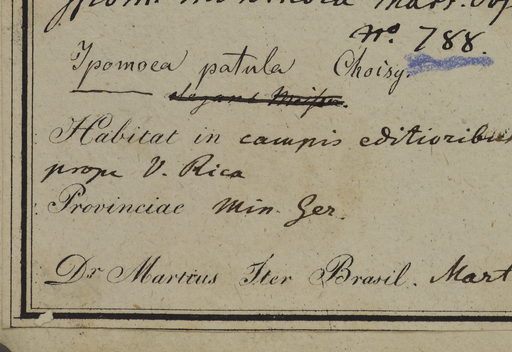 Nº. 788.
Ipomoea patula Choisy.
Habitat in campis editioribus
prope V. Rica
Provinciae Min. Ger.
Dr. Martius Iter Brasil. Mart